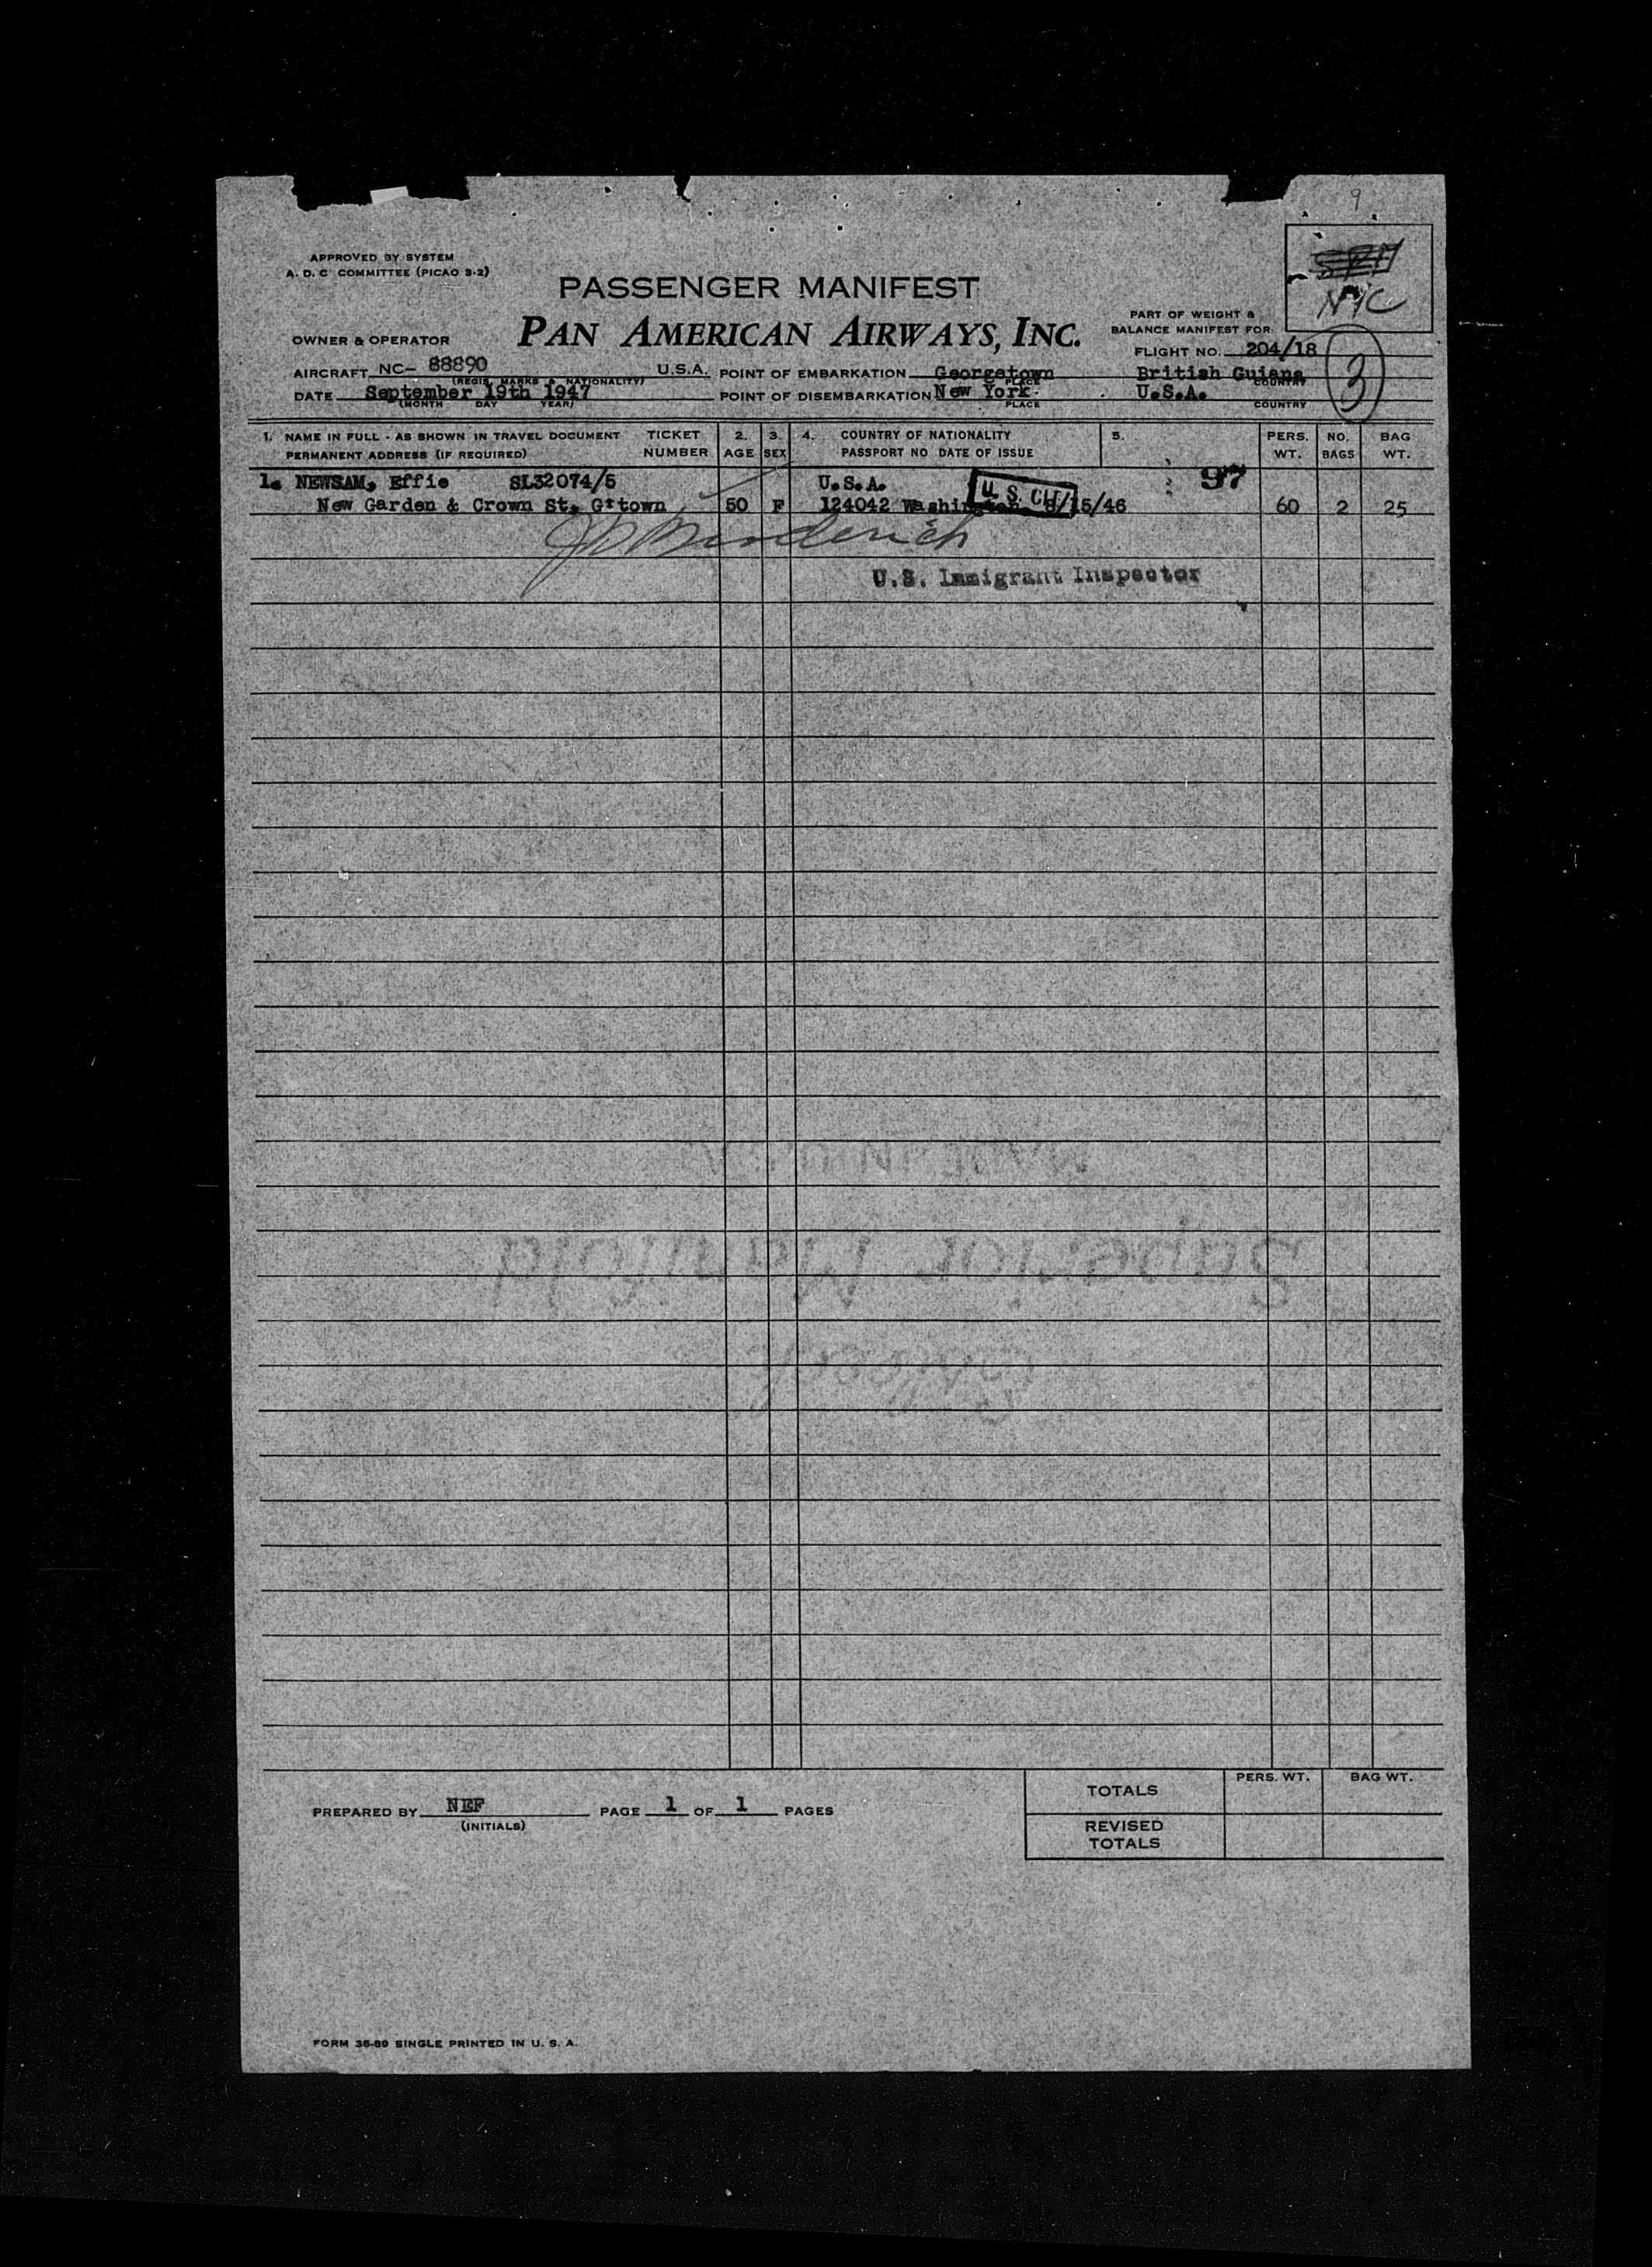 9
APPROVED BY SYSTEM
A. D. C COMMITTEE (PICAO 3-2)
NYC
PASSENGER MANIFEST
PAN AMERICAN AIRWAYS, INC.
PART OF WEIGHT &
BALANCE MANIFEST FOR:
OWNER & OPERATOR
FLIGHT NO. 204/18
3
AIRCRAFT NC- 88890 U.S.A. POINT OF EMBARKATION Georgetown British Guiana
(REGIS. MARKS & NATIONALITY) PLACE COUNTRY
DATE September 19th 1947 POINT OF DISEMBARKATION New York. U.S.A.
(MONTH DAY YEAR) PLACE COUNTRY
1. NAME IN FULL - AS SHOWN IN TRAVEL DOCUMENT TICKET 2. 3. 4. COUNTRY OF NATIONALITY 5. PERS. NO. BAG
PERMANENT ADDRESS (IF REQUIRED) NUMBER AGE SEX PASSPORT NO DATE OF ISSUE WT. BAGS WT.
1. NEWSAM, Effie SL32074/5 U.S.A. U. S. CIT. 97
New Garden & Crown St, G'town 50 F 124042 Washington 8/15/46 60 2 25
U.S. Immigrant Inspector
PREPARED BY NEF PAGE 1 OF 1 PAGES
(INITIALS)
TOTALS PERS. WT. BAG WT.
REVISED
TOTALS
FORM 36-89 SINGLE PRINTED IN U. S. A.